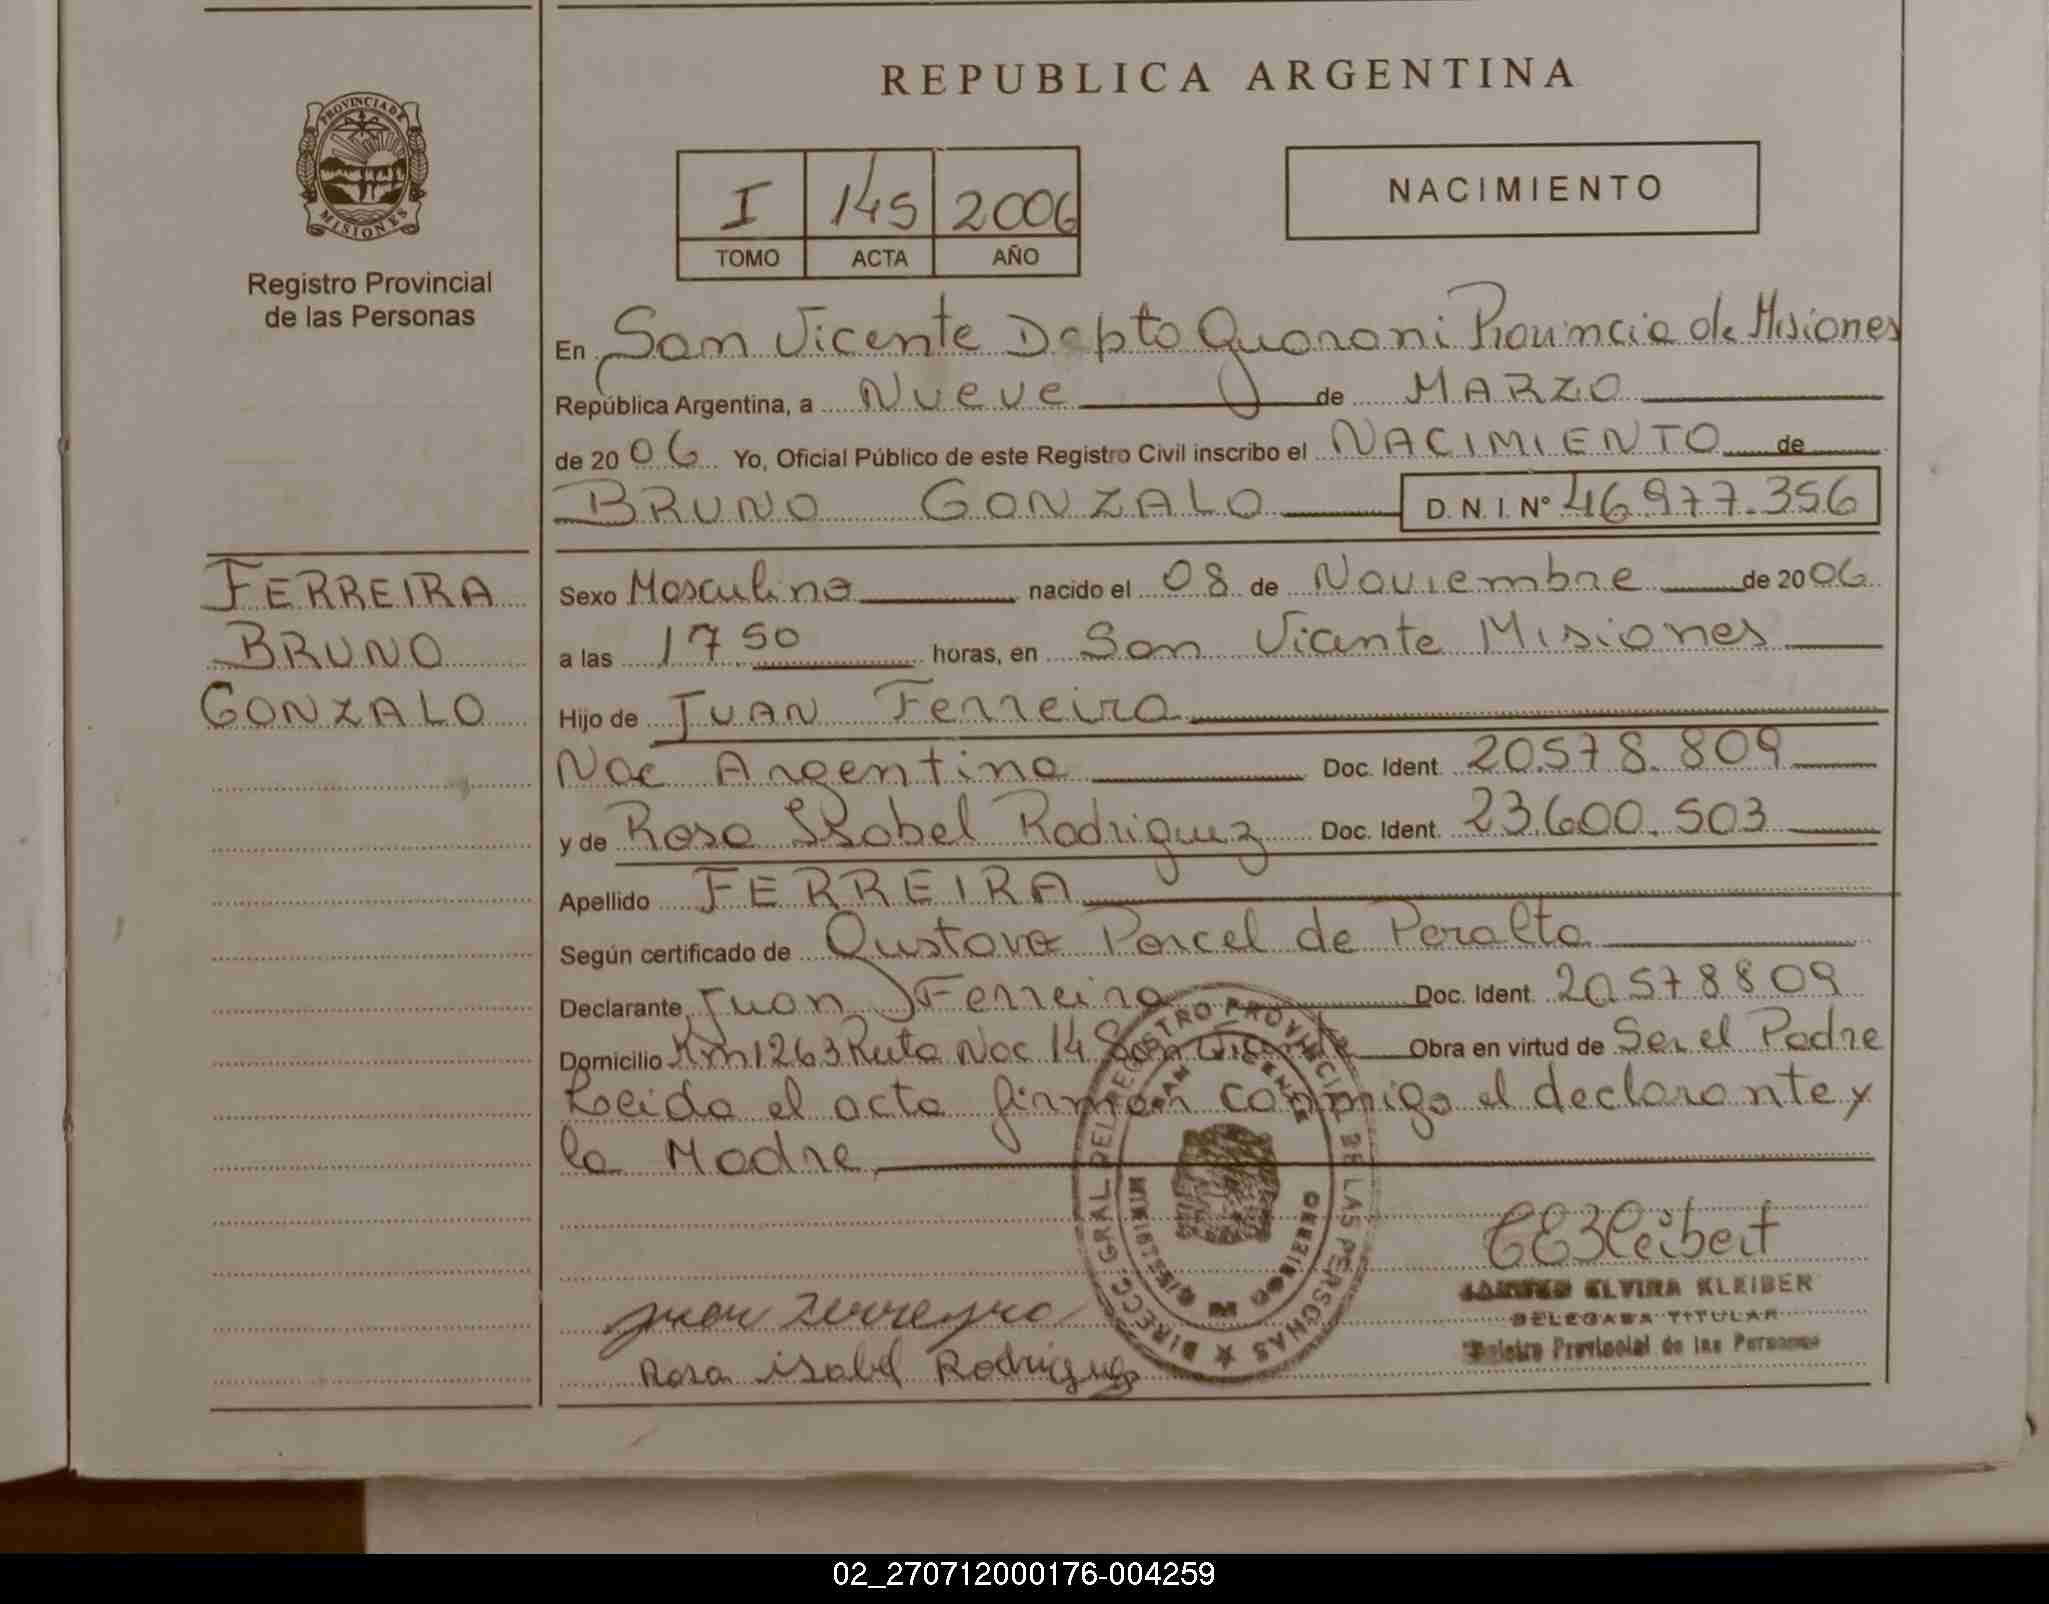 REPUBLICA ARGENTINA
PROVINCIA DE
MISIONES
Registro Provincial
de las Personas
I 145 2006
TOMO ACTA AÑO
NACIMIENTO
En San Vicente Depto Guarani Provincia de Misiones
República Argentina, a Nueve de MARZO
de 20 06 Yo, Oficial Público de este Registro Civil inscribo el NACIMIENTO de
BRUNO GONZALO D. N. I. Nº 46.977.356
FERREIRA
BRUNO
GONZALO
Sexo Masculino nacido el 08 de Noviembre de 20 06
a las 17 50 horas, en San Vicente Misiones
Hijo de JUAN Ferreira
Nac Argentina Doc. Ident. 20.578.809
y de Rosa Isabel Rodriguez Doc. Ident. 23.600.503
Apellido FERREIRA
Según certificado de Gustavo Porcel de Peralta
Declarante Juan Ferreira Doc. Ident. 20.578809
Domicilio Km 1263 Ruta Nac 14 San Vicente Obra en virtud de Ser el Padre
Leida el acta firman conmigo el declarante y
la Madre
DIRECC. GRAL DEL REGISTRO PROVINCIAL DE LAS PERSONAS
SAN VICENTE
MISIONES
ELVIRA KLEIBER
DELEGADA TITULAR
Provincial de las Personas
Juan Ferreyra
Rosa isabel Rodriguez
02_270712000176-004259